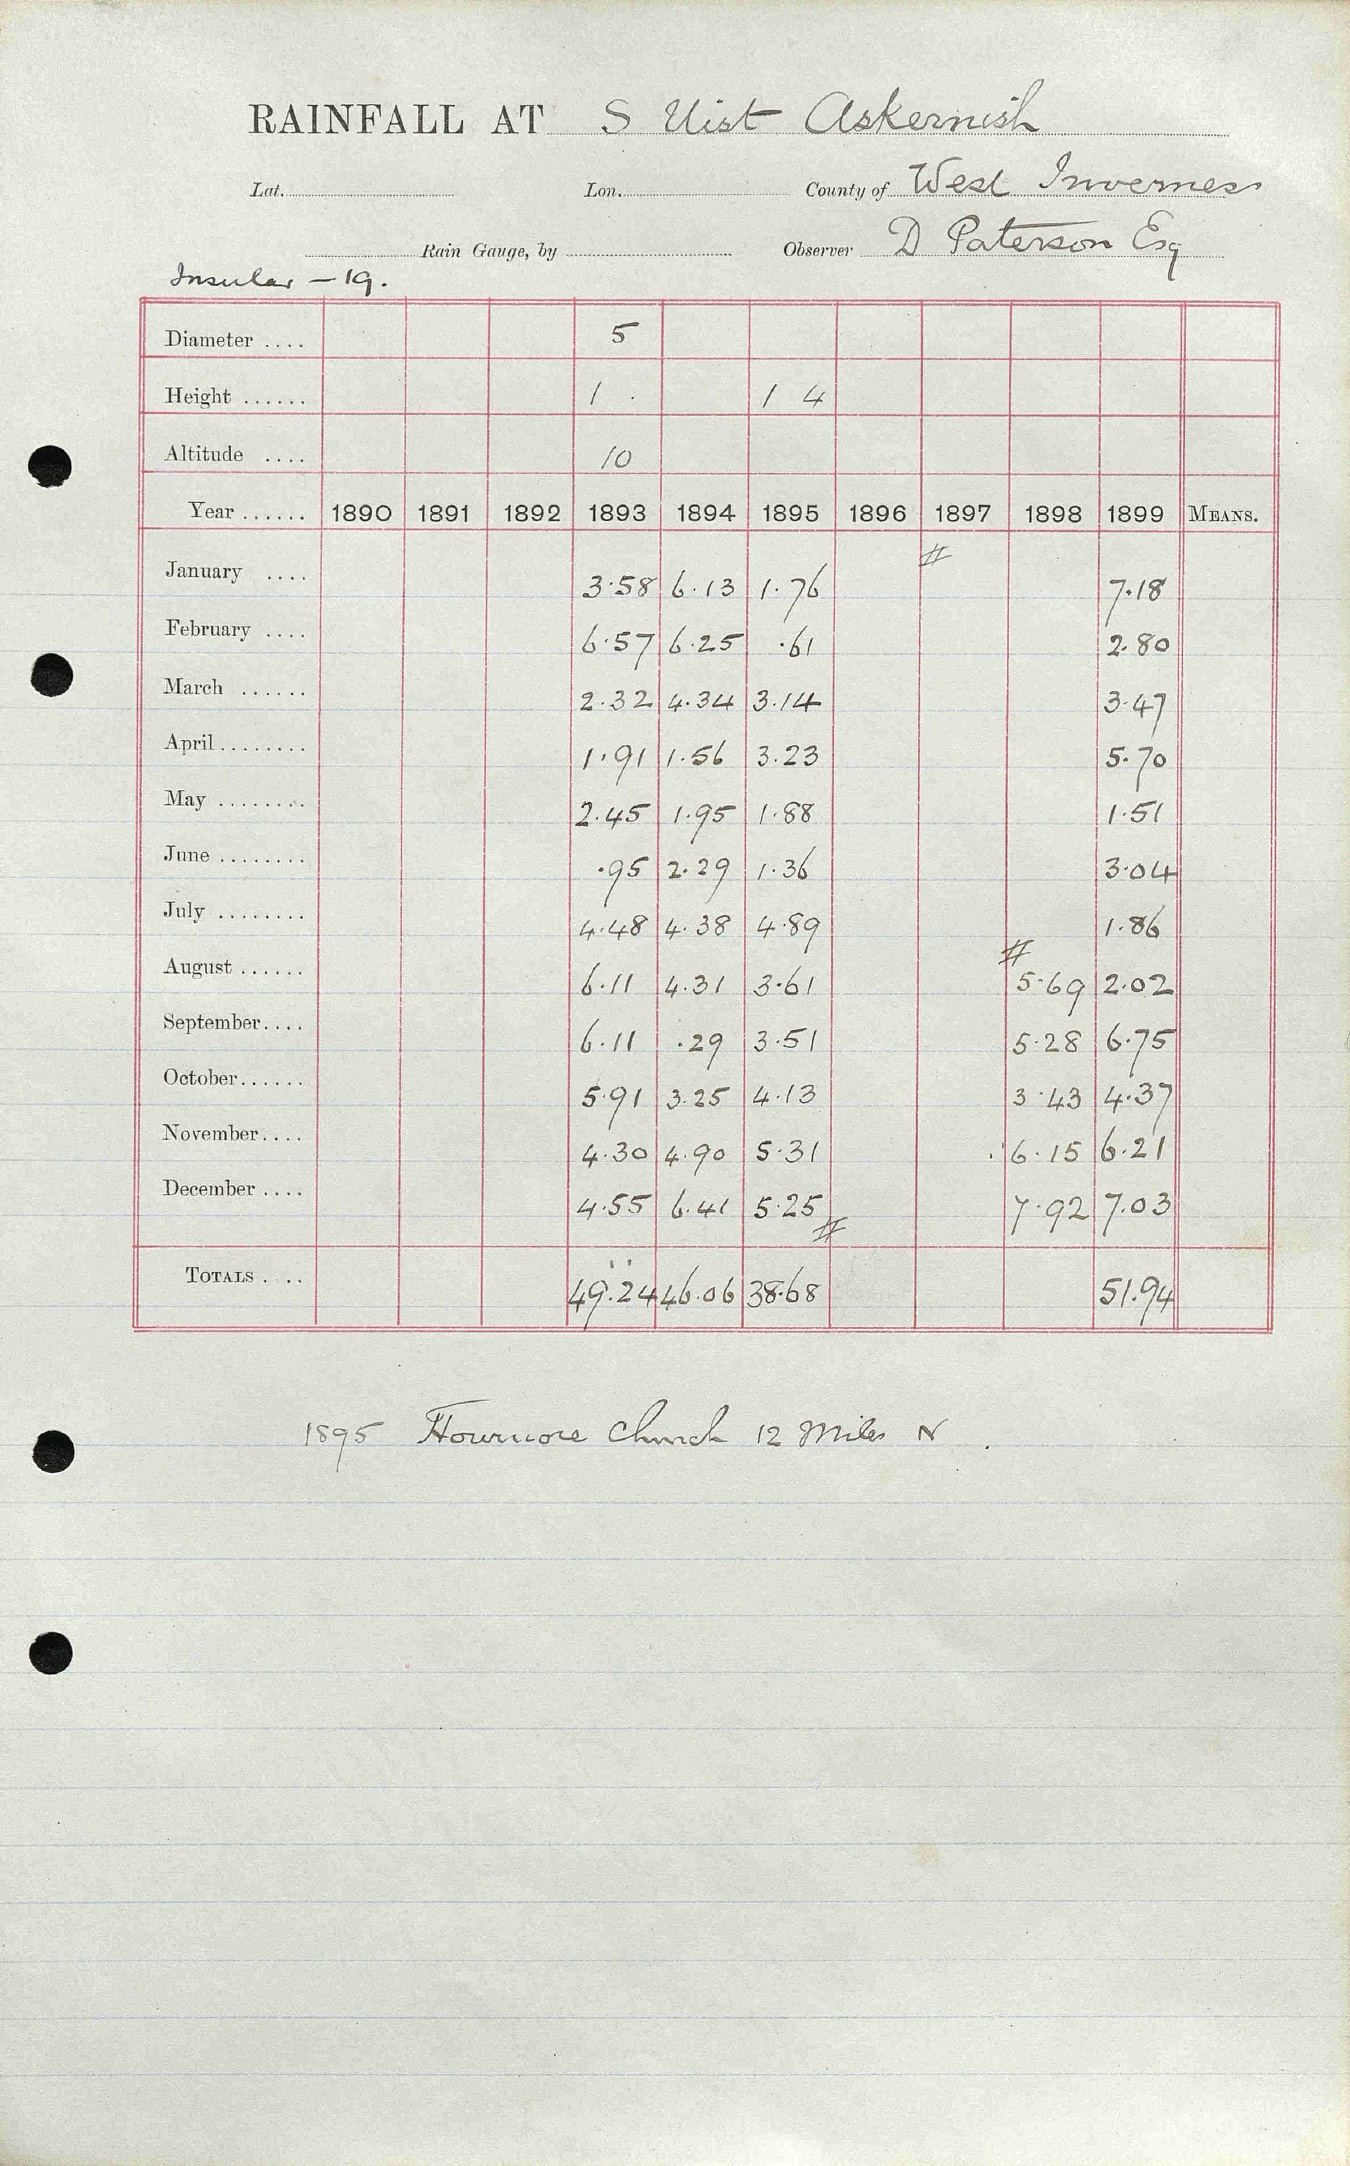 RAINFALL AT S Uist Askernish
Lat. Lon. County of West Inverness
Rain Gauge, by Observer D Paterson Esq
Insular - 19.
Diameter .... 5
Height ...... 1 . 1 4
Altitude .... 10
Year ...... 1890 1891 1892 1893 1894 1895 1896 1897 1898 1899 MEANS.
#
January .... 3.58 6.13 1.76 7.18
February .... 6.57 6.25 .61 2.80
March ...... 2.32 4.34 3.14 3.47
April ........ 1.91 1.56 3.23 5.70
May ........ 2.45 1.95 1.88 1.51
June ........ .95 2.29 1.36 3.04
July ........ 4.48 4.38 4.89 1.86
#
August ...... 6.11 4.31 3.61 5.69 2.02
September.... 6.11 .29 3.51 5.28 6.75
October...... 5.91 3.25 4.13 3.43 4.37
November.... 4.30 4.90 5.31 6.15 6.21
December .... 4.55 6.41 5.25 7.92 7.03
#
TOTALS .... 49.24 46.06 38.68 51.94
1895 Howmore Church 12 Miles N .